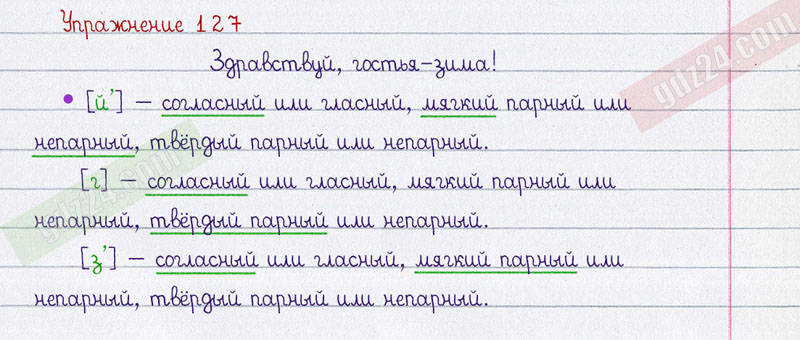 Упражнение 127
Здравствуй, гостья-зима!
• [й’] — согласный или гласный, мягкий парный или
непарный, твёрдый парный или непарный.
[г] — согласный или гласный, мягкий парный или
непарный, твёрдый парный или непарный.
[з’] — согласный или гласный, мягкий парный или
непарный, твёрдый парный или непарный.
gdz24.com
gdz24.com